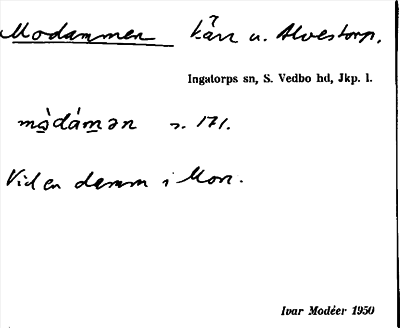 Modammen kärr u. Alvestorp.
Ingatorps sn, S. Vedbo hd, Jkp. l.
mòdámən s. 171.
Vid en damm i Mon.
Ivar Modéer 1950